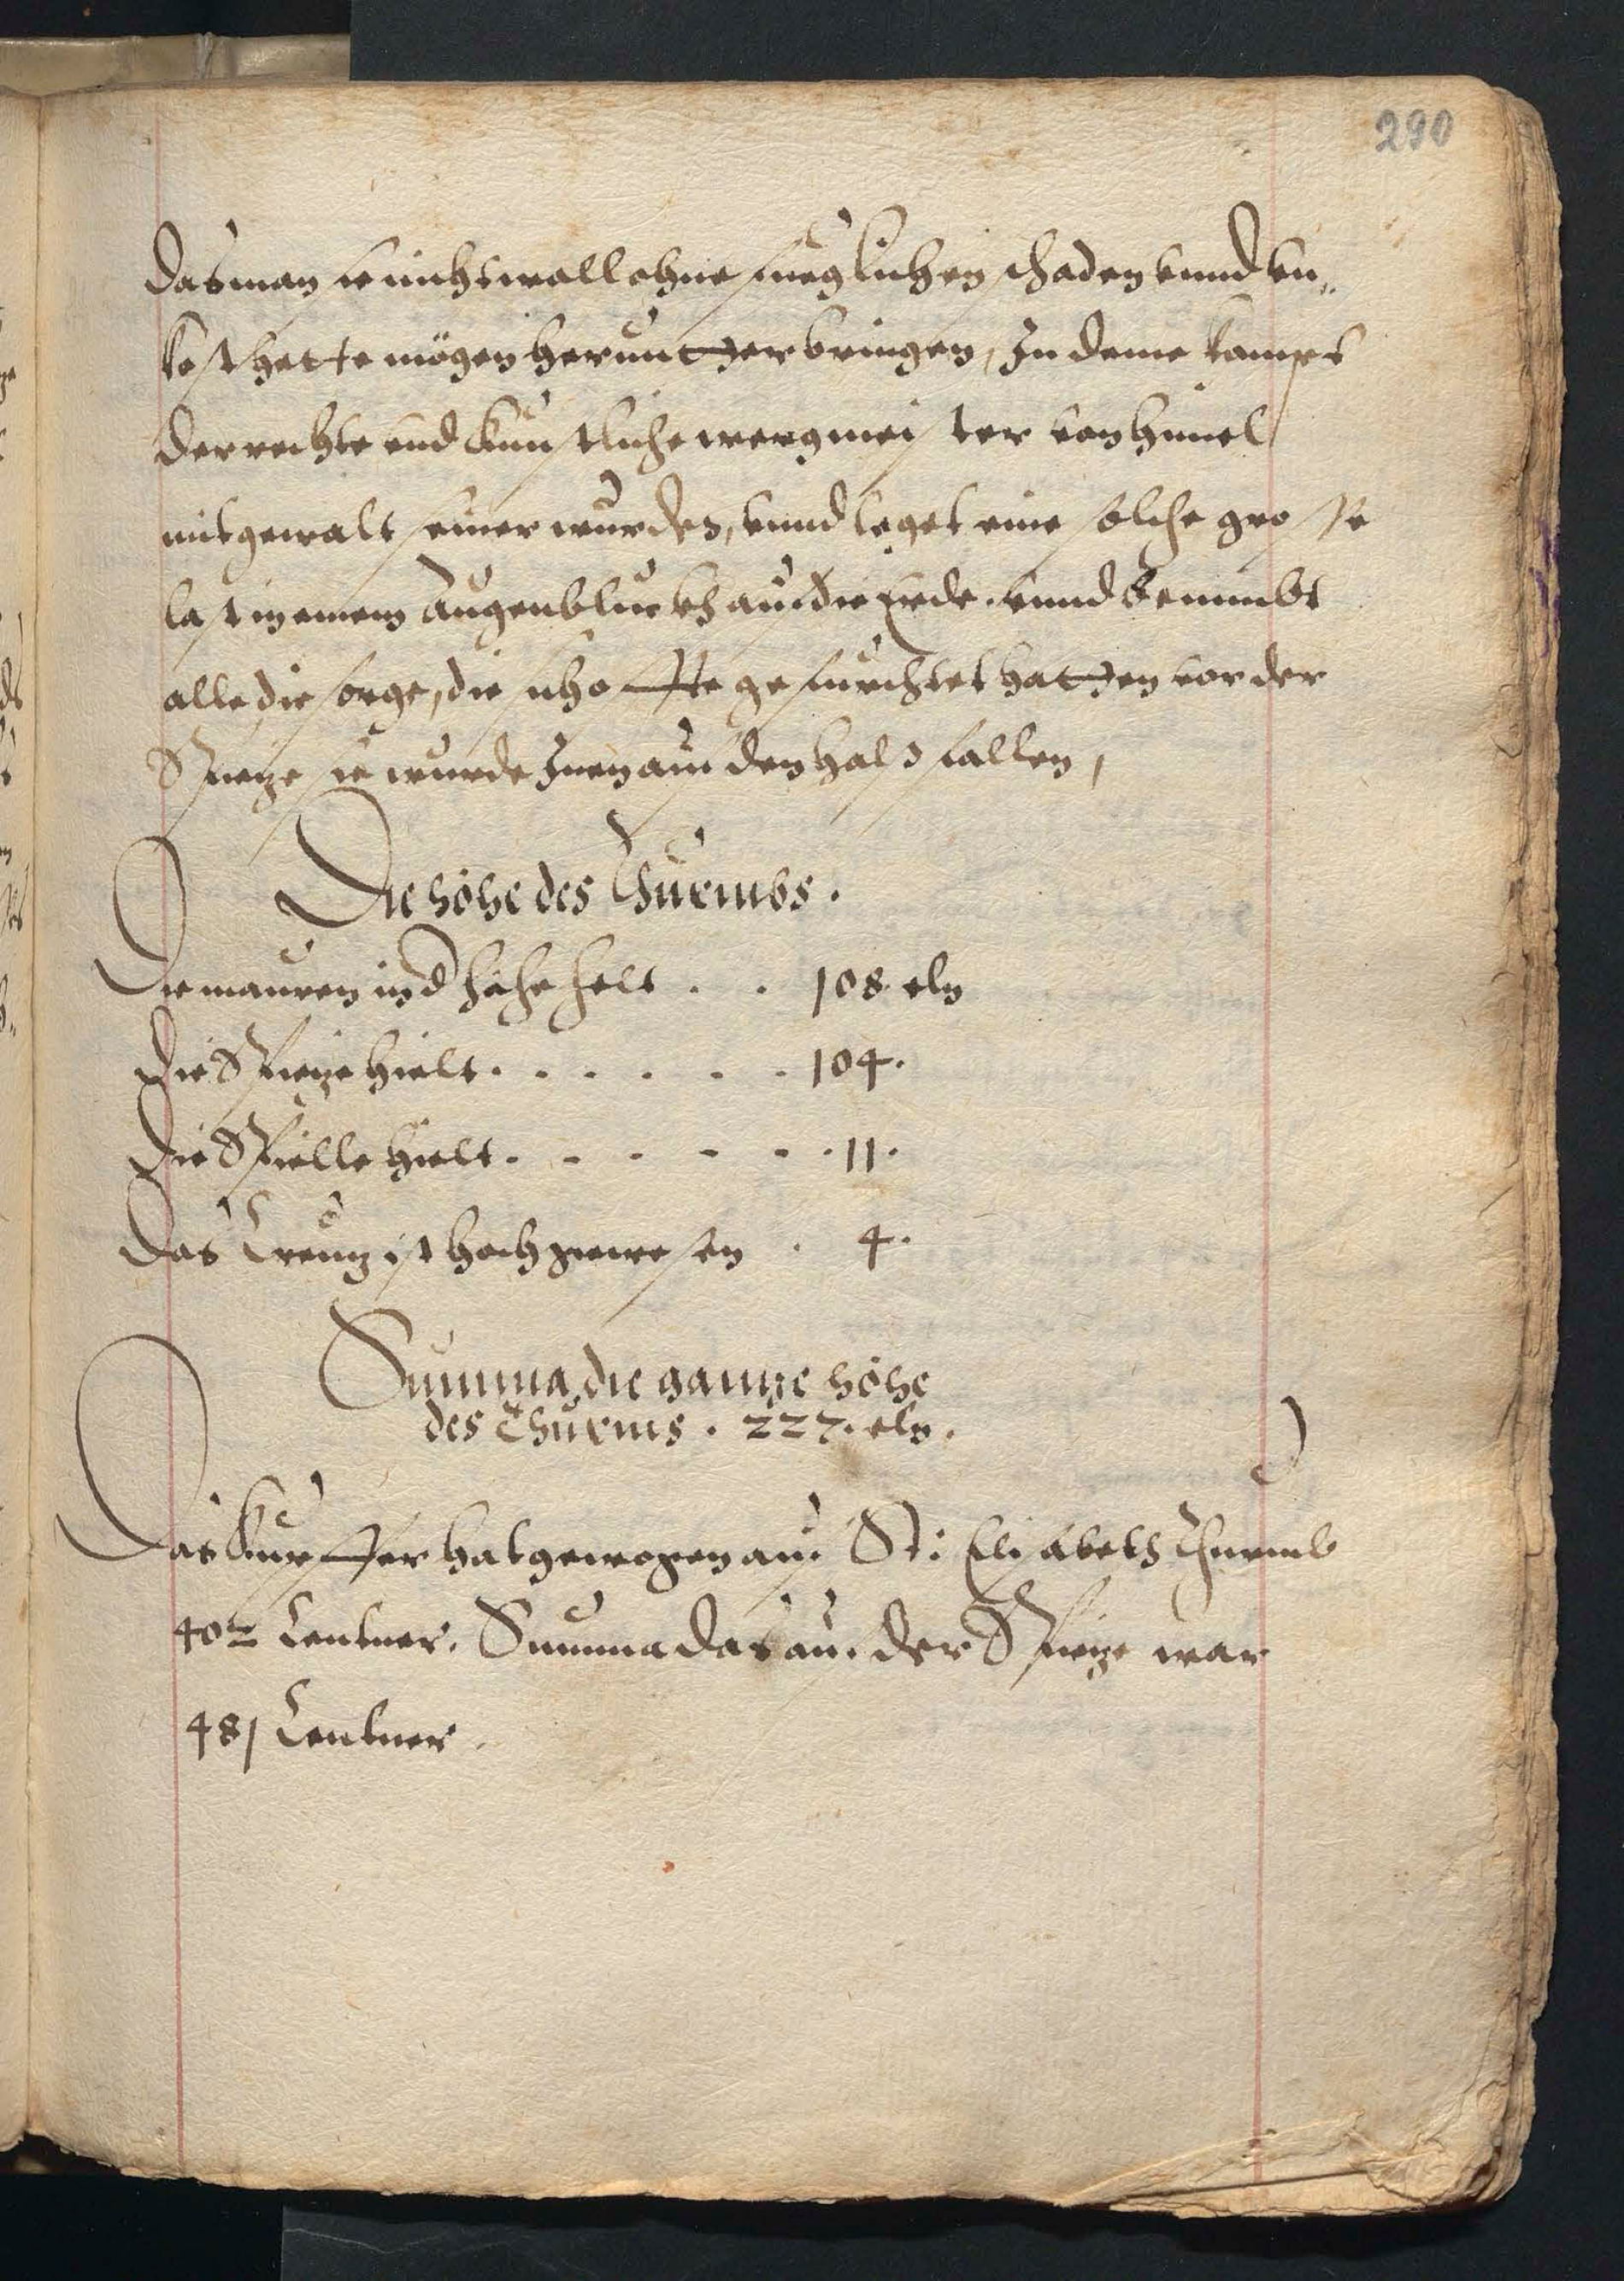 290
das man sie nicht wall ohne mglichen schaden vnnd vn„
kost hette mögen herunter bringen, In deme kompt
der rechte vnd kunstliche wergmeister von himel
mit gewalt seiner wurden, vnnd leget eine solche grosse
last in einem augenblick auf die Erde. vnnd benimbt
alle die sorge, die sich offte gefürchtet hatten vor der
Spieze sie wurde Inen auf den hals fallen,
Die höhe des Thurmbs.
Die mauren in d höhe helt . . 108 eln
Die Spieze hielt . . . . . . 104.
Die Spille hielt . . . . . . 11.
Das Creutz ist hoch gewesen . 4.
Summa, die gantze höhe
des Thurms . 227. eln.
Das Kupffer hat gewogen auf St: Elisabeth Thurmb
402 Centner. Summa das auf der Spieze war
481 Centner.